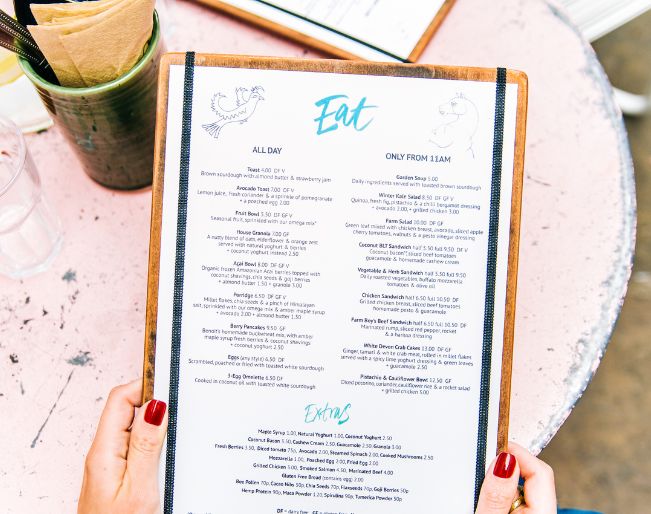 Eat
ALL DAY
Toast 4.00 DF V
Brown sourdough with almond butter & strawberry jam
Avocado Toast 7.00 DF V
Lemon juice, fresh coriander & a sprinkle of pomegranate
+ a poached egg 2.00
Fruit Bowl 5.50 DF GF V
Seasonal fruit, sprinkled with our omega mix*
House Granola 7.00 GF
A nutty blend of oats, elderflower & orange zest
served with natural yoghurt & berries
+ coconut yoghurt instead 2.50
Açai Bowl 8.00 DF GF V
Organic frozen Amazonian Açai berries topped with
coconut shavings, chia seeds & goji berries
+ almond butter 1.50 + granola 3.00
Porridge 6.50 DF GF V
Millet flakes, chia seeds & a pinch of Himalayan
salt, sprinkled with our omega mix & amber maple syrup
+ avocado 2.00 + almond butter 1.50
Berry Pancakes 9.50 GF
Benoit's homemade buckwheat mix, with amber
maple syrup fresh berries & coconut shavings
+ coconut yoghurt 2.50
Eggs (any style) 4.50 DF
Scrambled, poached or fried with toasted white sourdough
3-Egg Omelette 6.50 DF
Cooked in coconut oil with toasted white sourdough
ONLY FROM 11AM
Garden Soup 5.00
Daily ingredients served with toasted brown sourdough
Winter Kale Salad 8.50 DF GF V
Quinoa, fresh fig, pistachio & a chilli bergamot dressing
+ avocado 2.00, + grilled chicken 3.00
Farm Salad 10.00 GF
Green leaf mixed with chicken breast, avocado, sliced apple
cherry tomatoes, walnuts & a pesto vinegar dressing
Coconut BLT Sandwich half 5.50 full 9.50
Coconut bacon, sliced beef tomatoes
guacamole & homemade cashew cream
Vegetable & Herb Sandwich half 5.50 full 9.50
Daily roasted vegetables, buffalo mozzarella
tomatoes & olive oil
Chicken Sandwich half 6.50 full 10.50 DF
Grilled chicken breast, sliced beef tomatoes
homemade pesto & guacamole
Farm Boy's Beef Sandwich half 6.50 full 10.50 DF
Marinated rump, sliced red pepper, rocket
& a harissa dressing
White Devon Crab Cakes 13.00 DF GF
Ginger, tamari & white crab meat, rolled in millet flakes
served with a spicy lime yoghurt dressing & green leaves
+ guacamole 2.50
Pistachio & Cauliflower Bowl 12.50 GF
Diced pecorino, coriander, cauliflower rice & a rocket salad
+ grilled chicken 3.00
Extras
Maple Syrup 1.00, Natural Yoghurt 1.00, Coconut Yoghurt 2.50
Coconut Bacon 3.50, Cashew Cream 2.50, Guacamole 2.50, Granola 3.00
Fresh Berries 3.50, Diced tomato 75p, Avocado 2.00, Steamed Spinach 2.00, Cooked Mushrooms 2.50
Mozzarella 1.00, Poached Egg 2.00, Fried Egg 2.00
Grilled Chicken 3.00, Smoked Salmon 4.50, Marinated Beef 4.00
Gluten Free Bread (contains egg) 2.00
Bee Pollen 70p, Cacao Nibs 50p, Chia Seeds 70p, Flaxseeds 70p, Goji Berries 50p
Hemp Protein 90p, Maca Powder 1.20, Spirulina 90p, Tumerica Powder 50p
DF = dairy free